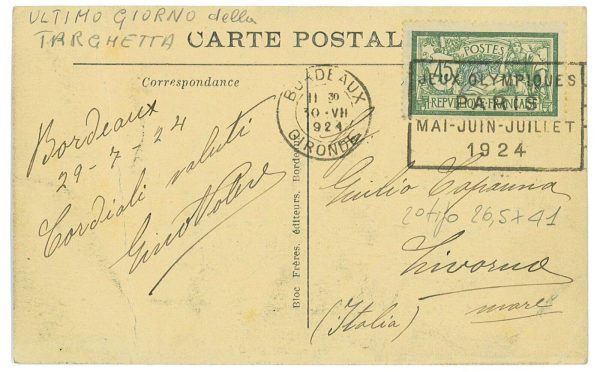 ULTIMO GIORNO della
TARGHETTA
CARTE POSTAL
Correspondance
Bordeaux
29-7-24
Cordiali saluti
Bloc Frères, éditeurs, Bordeaux
BORDEAUX
11 30
30 · VII
1924
GIRONDE
POSTES
45
REPUBLIQUE FRANÇAISE
JEUX OLYMPIQUES
PARIS
MAI-JUIN-JUILLET
1924
Giulio
2° tipo 26,5x41
Livorno
mare
(Italia)